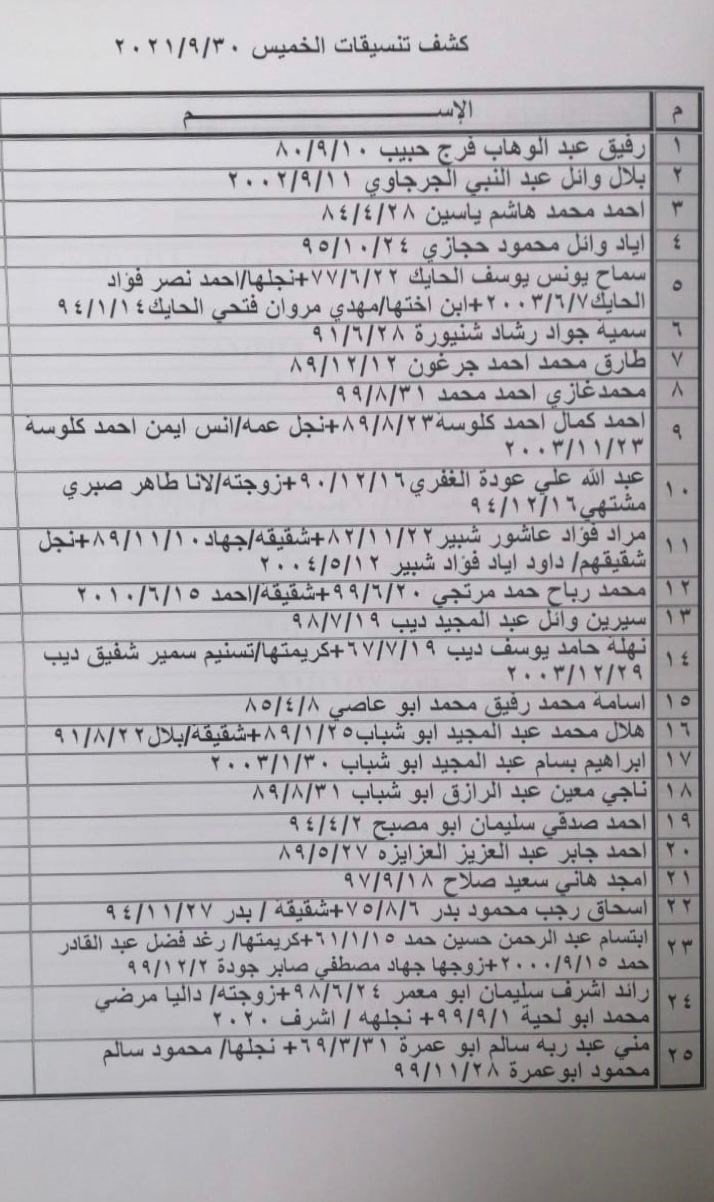 كشف تنسيقات الخميس ٢٠٢١/٩/٣٠
م الإســـــــــــم
١ رفيق عبد الوهاب فرج حبيب ٨٠/٩/١٠
٢ بلال وائل عبد النبي الجرجاوي ٢٠٠٢/٩/١١
٣ احمد محمد هاشم ياسين ٨٤/٤/٢٨
٤ اياد وائل محمود حجازي ٩٥/١٠/٢٤
٥ سماح يونس يوسف الحايك ٧٧/٦/٢٢+نجلها/احمد نصر فؤاد
الحايك٢٠٠٣/٦/٧+ابن اختها/مهدي مروان فتحي الحايك٩٤/١/١٤
٦ سمية جواد رشاد شنيورة ٩١/٦/٢٨
٧ طارق محمد احمد جرغون ٨٩/١٢/١٢
٨ محمدغازي احمد محمد ٩٩/٨/٣١
٩ احمد كمال احمد كلوسة٨٩/٨/٢٣+نجل عمه/انس ايمن احمد كلوسة
٢٠٠٣/١١/٢٣
١٠ عبد الله علي عودة الغفري٩٠/١٢/١٦+زوجته/لانا طاهر صبري
مشتهي٩٤/١٢/١٦
١١ مراد فؤاد عاشور شبير٨٢/١١/٢٢+شقيقه/جهاد٨٩/١١/١٠+نجل
شقيقهم/ داود اياد فؤاد شبير ٢٠٠٤/٥/١٢
١٢ محمد رباح حمد مرتجي ٩٩/٦/٢٠+شقيقة/احمد ٢٠١٠/٦/١٥
١٣ سيرين وائل عبد المجيد ديب ٩٨/٧/١٩
١٤ نهلة حامد يوسف ديب ٦٧/٧/١٩+كريمتها/تسنيم سمير شفيق ديب
٢٠٠٣/١٢/٢٩
١٥ اسامة محمد رفيق محمد ابو عاصي ٨٥/٤/٨
١٦ هلال محمد عبد المجيد ابو شباب٨٩/١/٢٥+شقيقة/بلال٩١/٨/٢٢
١٧ ابراهيم بسام عبد المجيد ابو شباب ٢٠٠٣/١/٣٠
١٨ ناجي معين عبد الرازق ابو شباب ٨٩/٨/٣١
١٩ احمد صدقي سليمان ابو مصبح ٩٤/٤/٢
٢٠ احمد جابر عبد العزيز العزايزه ٨٩/٥/٢٧
٢١ امجد هاني سعيد صلاح ٩٧/٩/١٨
٢٢ اسحاق رجب محمود بدر ٧٥/٨/٦+شقيقة / بدر ٩٤/١١/٢٧
٢٣ ابتسام عبد الرحمن حسين حمد ٦١/١/١٥+كريمتها/ رغد فضل عبد القادر
حمد ٢٠٠٠/٩/١٥+زوجها جهاد مصطفي صابر جودة ٩٩/١٢/٢
٢٤ رائد اشرف سليمان ابو معمر ٩٨/٦/٢٤+زوجته/ داليا مرضي
محمد ابو لحية ٩٩/٩/١+ نجلهه / اشرف ٢٠٢٠
٢٥ مني عبد ربه سالم ابو عمرة ٦٩/٣/٣١+ نجلها/ محمود سالم
محمود ابوعمرة ٩٩/١١/٢٨